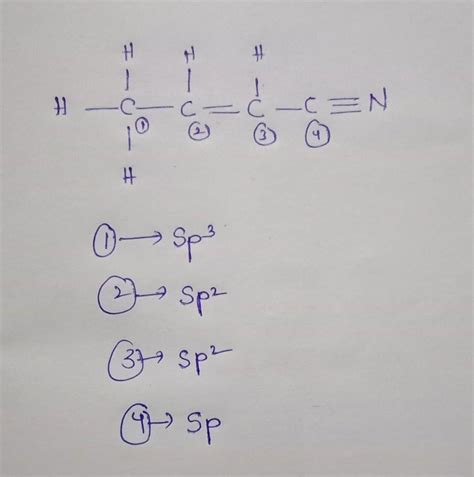 H H H
H—C—C=C—C≡N
① ② ③ ④
H
① → Sp³
② → Sp²
③ → Sp²
④ → Sp